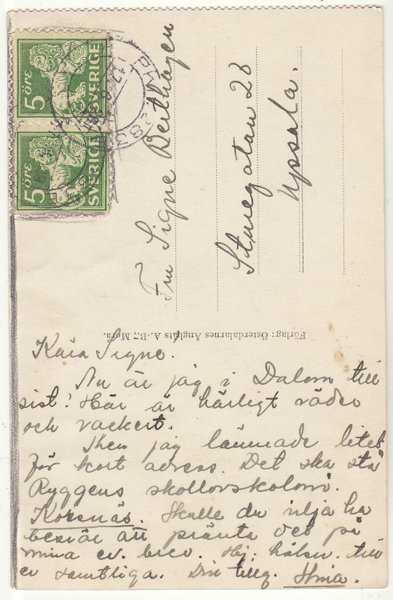 Kära Signe.
Nu är jag i Dalom till
sist! Här är härligt väder
och vackert.
Men jag lämnade litet
för kort adress. Det ska stå
Ryggens skollovskoloni
Korsnäs. Skulle du vilja ha
besvär att pränta det på
mina ev. brev. Hj. hälsn. till
er samtliga. Din tillg.
Fru Signe Berthagen
Sturegatan 28
Uppsala.
Förlag: Österdalarnes Anglats A.-B., Mora.
5 ÖRE
SVERIGE
5 ÖRE
SVERIGE